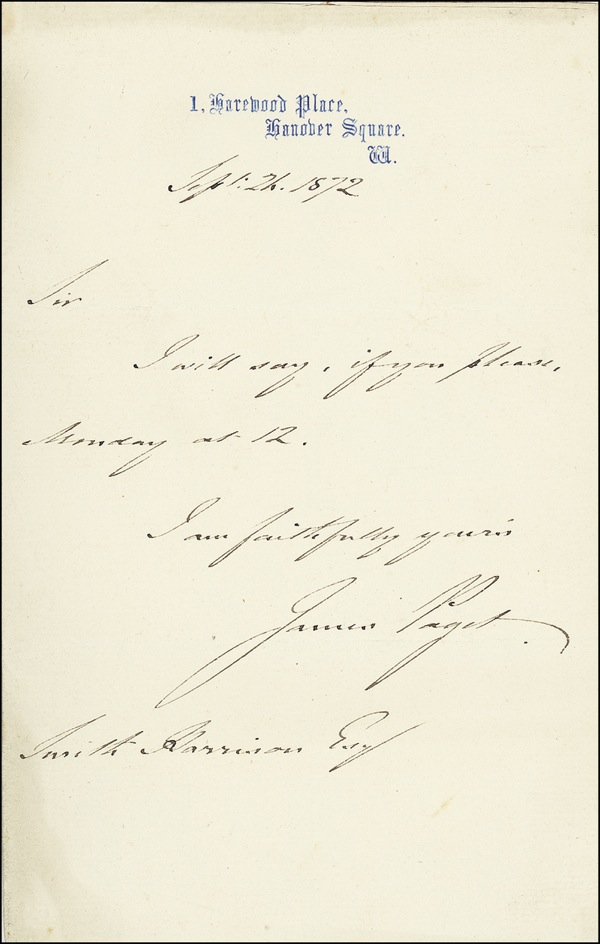 1, Harewood Place,
Hanover Square.
W.
Sept. 26. 1872
Sir
I will say, if you please,
Monday at 12.
I am faithfully yours
James Paget.
Smith Harrison Esq